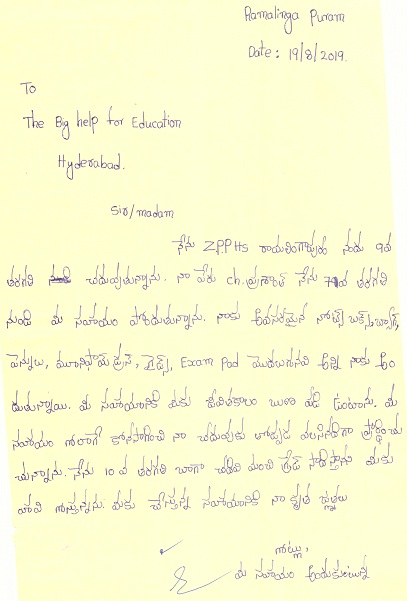 Ramalinga Puram
Date: 19/8/2019.
To
The Big help for Education
Hyderabad.
Sir/madam
నేను Z.P.P.Hs రామలింగాపురం నందు 9వ
తరగతి చదువుతున్నాను. నా పేరు ch.ప్రశాంత్ నేను 7వ తరగతి
నుండి మీ సహాయం పొందుతున్నాను. నాకు అవసరమైన నోట్స్ బుక్స్, బ్యాగ్,
పెన్నులు, యూనిఫామ్ డ్రస్, గైడ్స్, Exam Pad మొదలగునవి అన్ని నాకు అం
దుతున్నాయి. మీ సహాయానికి మీకు జీవితకాలం ఋణ పడి ఉంటాను. మీ
సహాయం ఇలాగే కొనసాగించి నా చదువుకు తోడ్పడ వలసినదిగా ప్రార్థించు
చున్నాను. నేను 10 వ తరగతి బాగా చదివి మంచి గ్రేడ్ సాధిస్తాను మీకు
హామి ఇస్తున్నాను. మీకు చేస్తున్న సహాయానికి నా కృతజ్ఞతలు
ఇట్లు,
మీ సహాయం అందుకుంటున్న